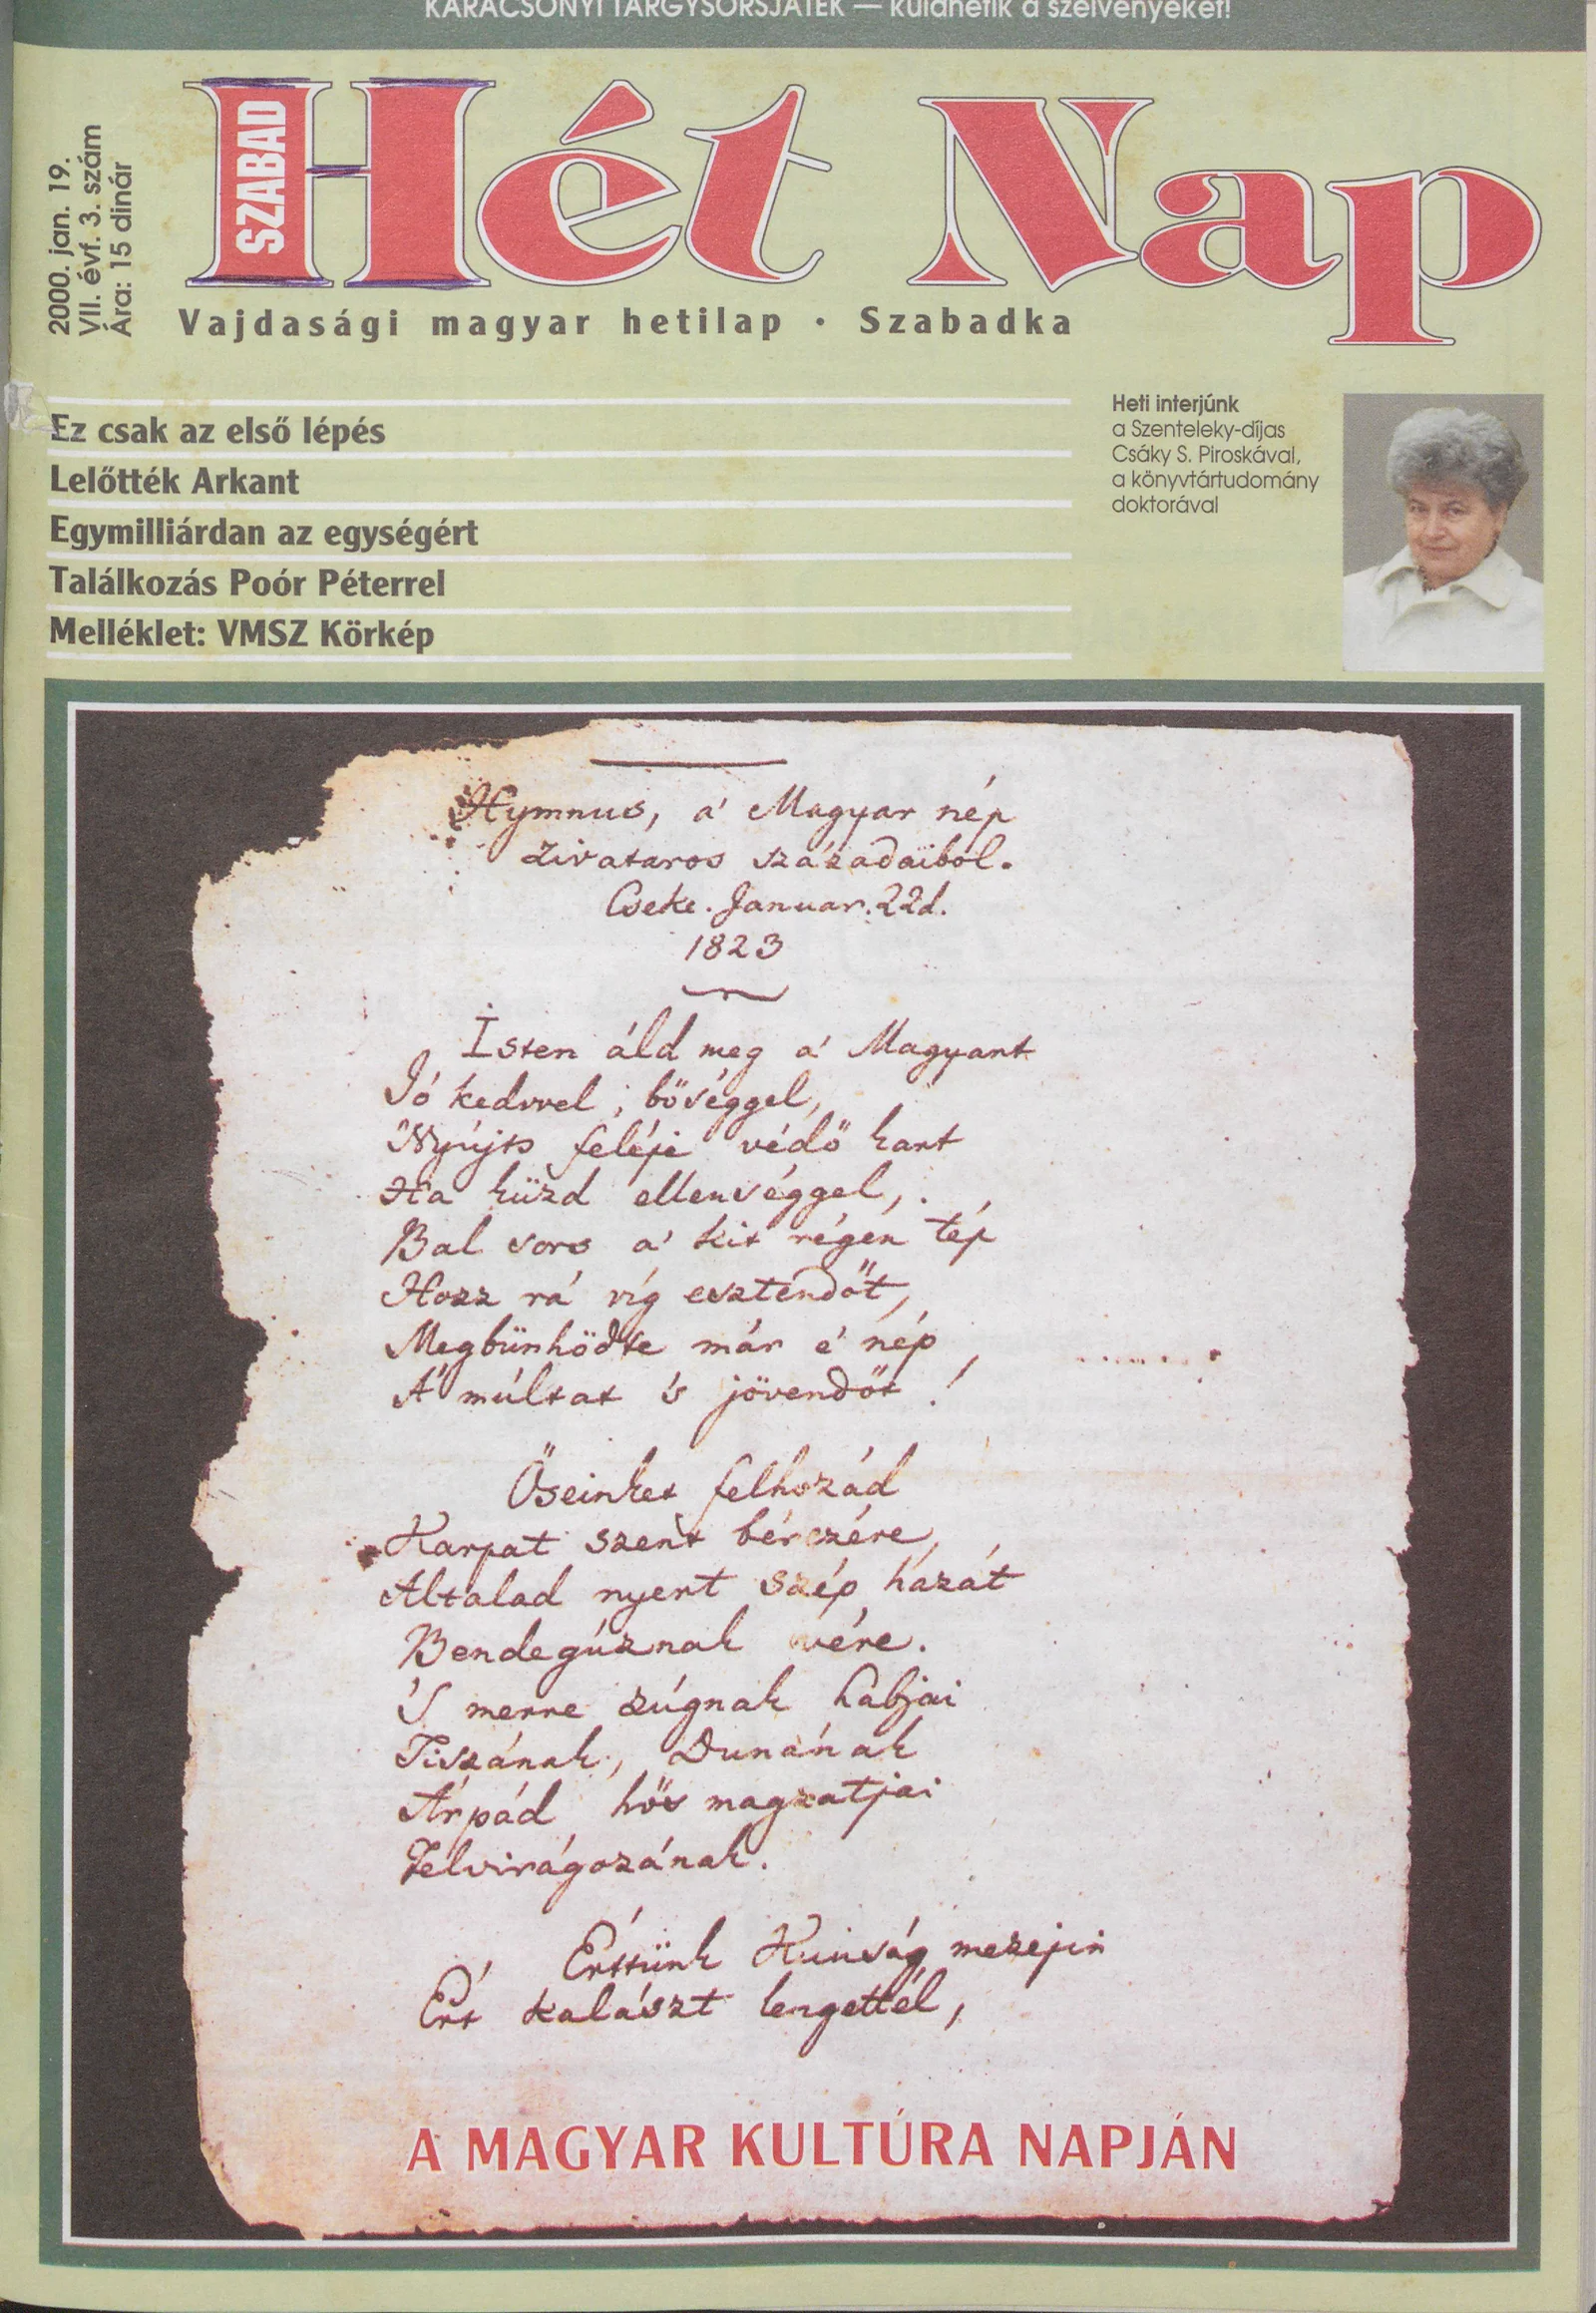 KARÁCSONYI TÁRGYSORSJÁTÉK — küldhetik a szelvényeket!
2000. jan. 19.
VII. évf. 3. szám
Ára: 15 dinár
SZABAD
Hét Nap
Vajdasági magyar hetilap · Szabadka
Ez csak az első lépés
Lelőtték Arkant
Egymilliárdan az egységért
Találkozás Poór Péterrel
Melléklet: VMSZ Körkép
Heti interjúnk
a Szenteleky-díjas
Csáky S. Piroskával,
a könyvtártudomány
doktorával
Hymnus, a' Magyar nép
zivataros századaiból.
Cseke. Januar. 22d.
1823
Isten áld meg a' Magyart
Jó kedvvel, bőséggel,
Nyújts feléje védő kart
Ha küzd ellenséggel,
Bal sors a' kit régen tép
Hozz rá víg esztendőt,
Megbünhödte már é nép
A' múltat 's jövendőt!
Őseinket felhozád
Karpat szent bérczére,
Altalad nyert szép hazát
Bendegúznak vére.
'S merre zúgnak habjai
Tiszának, Dunának
Árpád hős magzatjai
Felvirágozának.
Értünk Kunság mezejin
Ért kalászt lengettél,
A MAGYAR KULTÚRA NAPJÁN